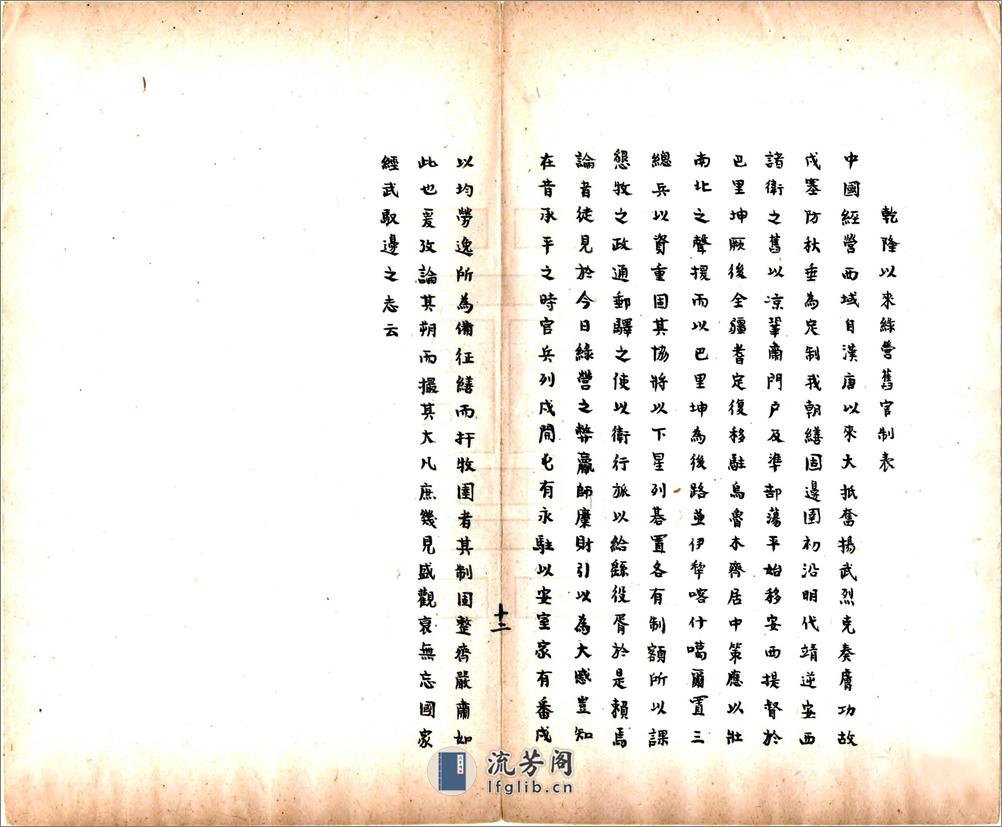 乾隆以來綠營舊官制表
中國經營西域自漢唐以來大抵奮揚武烈克奏膚功故
戍塞防秋垂為定制我朝繕固邊圉初沿明代靖逆安西
諸衛之舊以凉鞏肅門户及準部蕩平始移安西提督於
巴里坤厥後全疆耆定復移駐烏魯木齊居中策應以壯
南北之聲援而以巴里坤為後路並伊犂喀什噶爾置三
總兵以資重固其協將以下星列碁置各有制額所以課
懇牧之政通郵驛之使以衛行旅以給繇役胥於是賴焉
論者徒見於今日綠營之弊羸師糜財引以為大慼豈知
在昔承平之時官兵列戍間屯有永駐以安室家有番戍
十二
以均勞逸所為備征繕而扞牧圉者其制固整齊嚴肅如
此也爰攷論其朔而撮其大凡庶幾見盛觀衰無忘國家
經武馭邊之志云
流芳阁
lfglib.cn